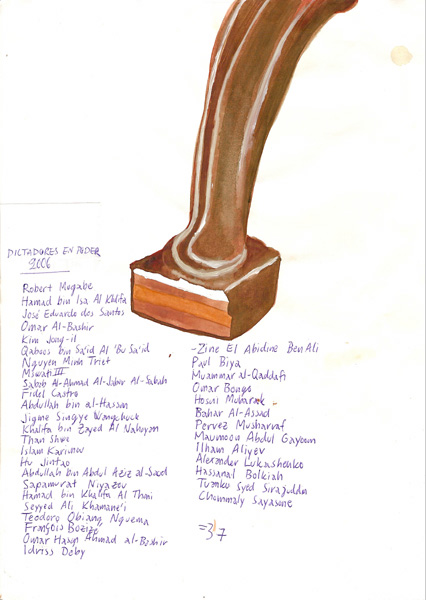 DICTADORES EN PODER
2006
Robert Mugabe
Hamad bin Isa Al Khalifa
José Eduardo des Santos
Omar Al-Bashir
Kim Jong-il
Qaboos bin Sa'id Al 'Bu Sa'id
Nguyen Minh Triet
Mswati III
Sabah Al-Ahmad Al-Jabir Al-Sabah
Fidel Castro
Abdullah bin al-Hassan
Jigme Singye Wangchuck
Khalifa bin Zayed Al Nahayan
Than Shwe
Islam Karimov
Hu Jintao
Abdullah bin Abdul Aziz al-Saed
Sapamurat Niyazov
Hamad bin Khalifa Al Thani
Seyyed Ali Khamane'i
Teodoro Obiang Nguema
François Bozizé
Omar Hasan Ahmad al-Bashir
Idriss Deby
-Zine El Abidine Ben Ali
Paul Biya
Muammar al-Qaddafi
Omar Bongo
Hosni Mubarak
Bahar Al-Assad
Pervez Musharraf
Maumoon Abdul Gayoum
Ilham Aliyev
Alexander Lukashenko
Hassanal Bolkiah
Tuanku Syed Sirajuddin
Choummaly Sayasone
=37